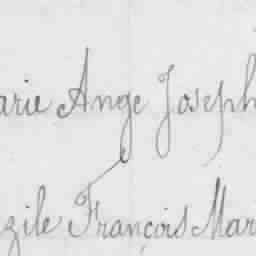 arie Ange Joseph
zile François Mari